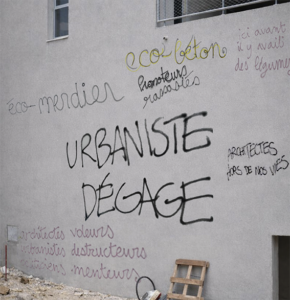 ici avant
il y avait
des légumes
eco-béton
Promoteurs
rassasiés
éco-merdier
URBANISTE
DÉGAGE
ARCHITECTES
HORS DE NOS VIES
architectes voleurs
urbanistes destructeurs
menteurs